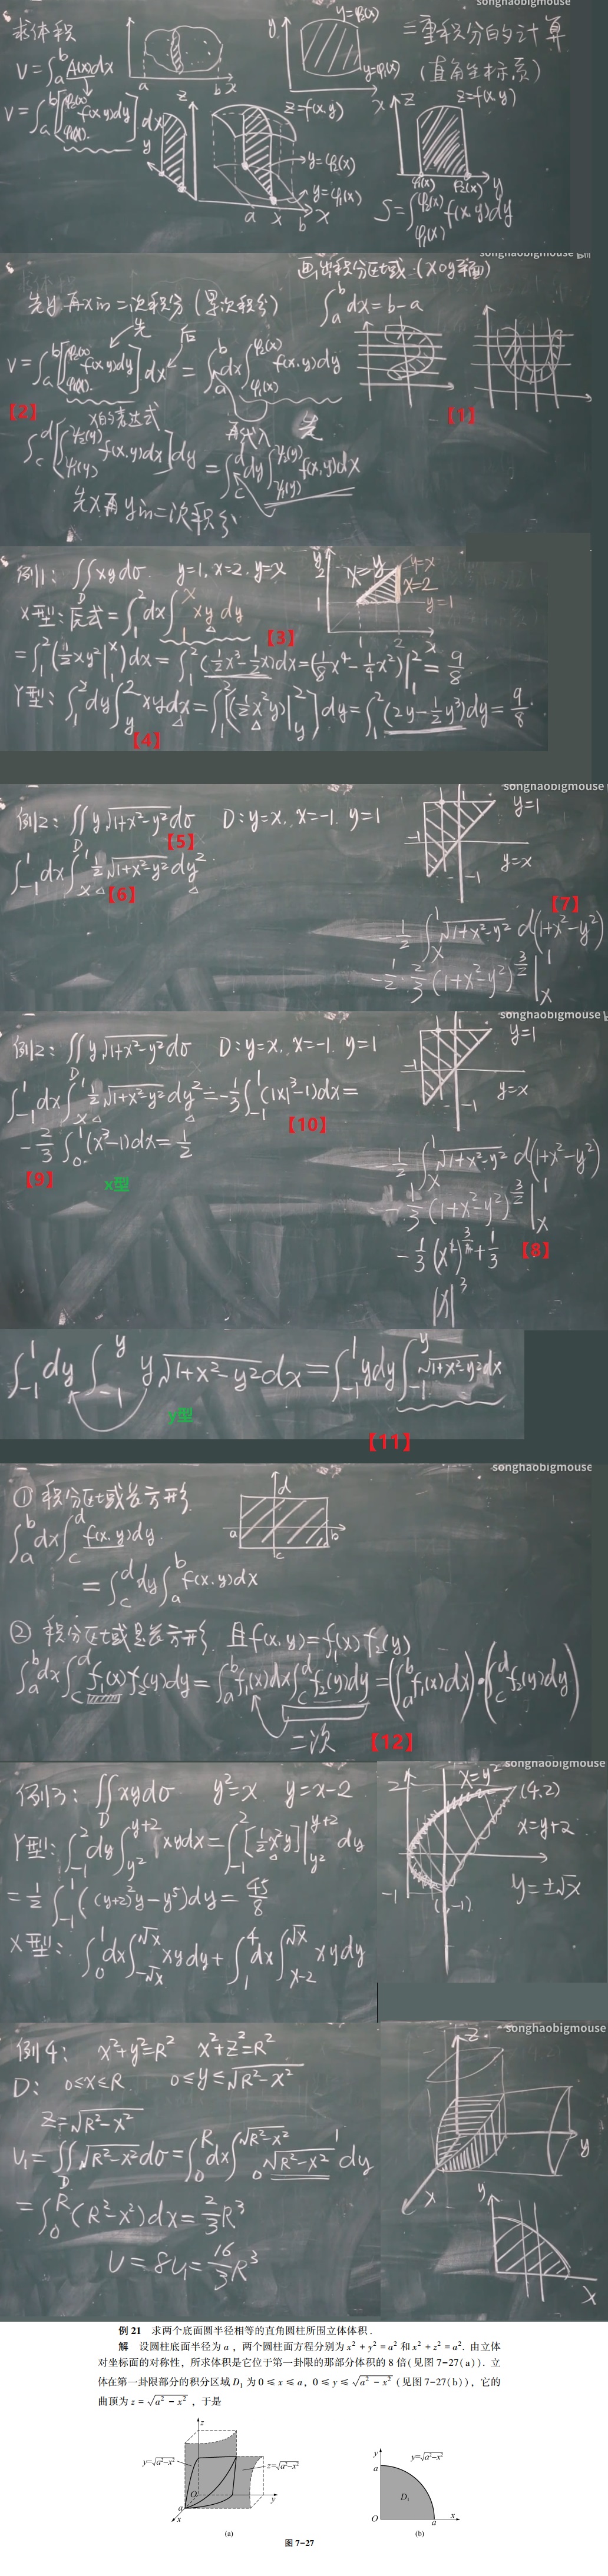 songhaobigmouse
求体积
V=∫_a^b A(x)dx
V=∫_a^b[∫_{φ₁(x)}^{φ₂(x)} f(x,y)dy]dx
a b x
y y=φ₂(x)
y=φ₁(x)
x
二重积分的计算
(直角坐标系)
z
y
z=f(x,y)
y=φ₂(x)
y=φ₁(x)
a x b x
z z=f(x,y)
φ₁(x) φ₂(x) y
S=∫_{φ₁(x)}^{φ₂(x)} f(x,y)dy
songhaobigmouse
画出积分区域(xoy平面)
先y再x的二次积分(累次积分)
∫_a^b dx=b-a
先 后
V=∫_a^b[∫_{φ₁(x)}^{φ₂(x)} f(x,y)dy]dx=∫_a^b dx∫_{φ₁(x)}^{φ₂(x)} f(x,y)dy
【2】
【1】
x的表达式
再代入 先
∫_c^d[∫_{ψ₁(y)}^{ψ₂(y)} f(x,y)dx]dy=∫_c^d dy∫_{ψ₁(y)}^{ψ₂(y)} f(x,y)dx
先x再y的二次积分
例1: ∬_D xydσ. y=1, x=2. y=x
y 2 1
x≥y
y=x
x=2
y=1
1 2 x
X型: 原式=∫_1^2 dx∫_1^x xy dy
【3】
=∫_1^2(½xy²|_1^x)dx=∫_1^2(½x³-½x)dx=(⅛x⁴-¼x²)|_1^2=9/8
Y型: ∫_1^2 dy∫_y^2 xydx=∫_1^2[(½x²y)|_y^2]dy=∫_1^2(2y-½y³)dy=9/8.
【4】
songhaobigmouse
例2: ∬_D y√(1+x²-y²)dσ D: y=x, x=-1. y=1
【5】
∫_{-1}^1 dx∫_x^1 ½√(1+x²-y²)dy²
【6】
1 y=1
-1
y=x
-1
【7】
-½∫_x^1 √(1+x²-y²) d(1+x²-y²)
-½·⅔(1+x²-y²)^{3/2}|_x^1
songhaobigmouse
例2: ∬_D y√(1+x²-y²)dσ D: y=x, x=-1. y=1
∫_{-1}^1 dx∫_x^1 ½√(1+x²-y²)dy²=-⅓∫_{-1}^1(|x|³-1)dx=
【10】
-⅔∫_0^1(x³-1)dx=½
【9】
x型
1 y=1
-1
y=x
-1
-½∫_x^1 √(1+x²-y²) d(1+x²-y²)
-⅓(1+x²-y²)^{3/2}|_x^1
-⅓(x²)^{3/2}+⅓
【8】
|x|³
∫_{-1}^1 dy∫_{-1}^y y√(1+x²-y²)dx=∫_{-1}^1 ydy∫_{-1}^y √(1+x²-y²)dx
y型
【11】
songhaobigmouse
① 积分区域长方形
∫_a^b dx∫_c^d f(x,y)dy
=∫_c^d dy∫_a^b f(x,y)dx
d
a b
c
② 积分区域是长方形. 且f(x,y)=f₁(x)f₂(y)
∫_a^b dx∫_c^d f₁(x)f₂(y)dy=∫_a^b f₁(x)dx∫_c^d f₂(y)dy=(∫_a^b f₁(x)dx)·(∫_c^d f₂(y)dy)
二次
【12】
songhaobigmouse
例3: ∬_D xydσ y²=x y=x-2
Y型: ∫_{-1}^2 dy∫_{y²}^{y+2} xydx=∫_{-1}^2[½x²y]|_{y²}^{y+2} dy
=½∫_{-1}^2((y+2)²y-y⁵)dy=45/8
X型: ∫_0^1 dx∫_{-√x}^{√x} xydy+∫_1^4 dx∫_{x-2}^{√x} xydy
2
x=y²
(4,2)
x=y+2
y=±√x
-1
(1,-1)
songhaobigmouse
例4: x²+y²=R² x²+z²=R²
D: 0≤x≤R 0≤y≤√(R²-x²)
z=√(R²-x²)
V₁=∬_D √(R²-x²)dσ=∫_0^R dx∫_0^{√(R²-x²)} √(R²-x²) dy
=∫_0^R(R²-x²)dx=⅔R³
V=8V₁=16/3 R³
z
y
x
y
x
例 21 求两个底面圆半径相等的直角圆柱所围立体体积.
解 设圆柱底面半径为 a, 两个圆柱面方程分别为 x²+y²=a² 和 x²+z²=a². 由立体
对坐标面的对称性, 所求体积是它位于第一卦限的那部分体积的 8 倍(见图 7-27(a)). 立
体在第一卦限部分的积分区域 D₁ 为 0≤x≤a, 0≤y≤√(a²-x²) (见图 7-27(b)), 它的
曲顶为 z=√(a²-x²), 于是
z
y=√(a²-x²)
z=√(a²-x²)
O
y
a
x
(a)
y
a
y=√(a²-x²)
D₁
O a x
(b)
图 7-27